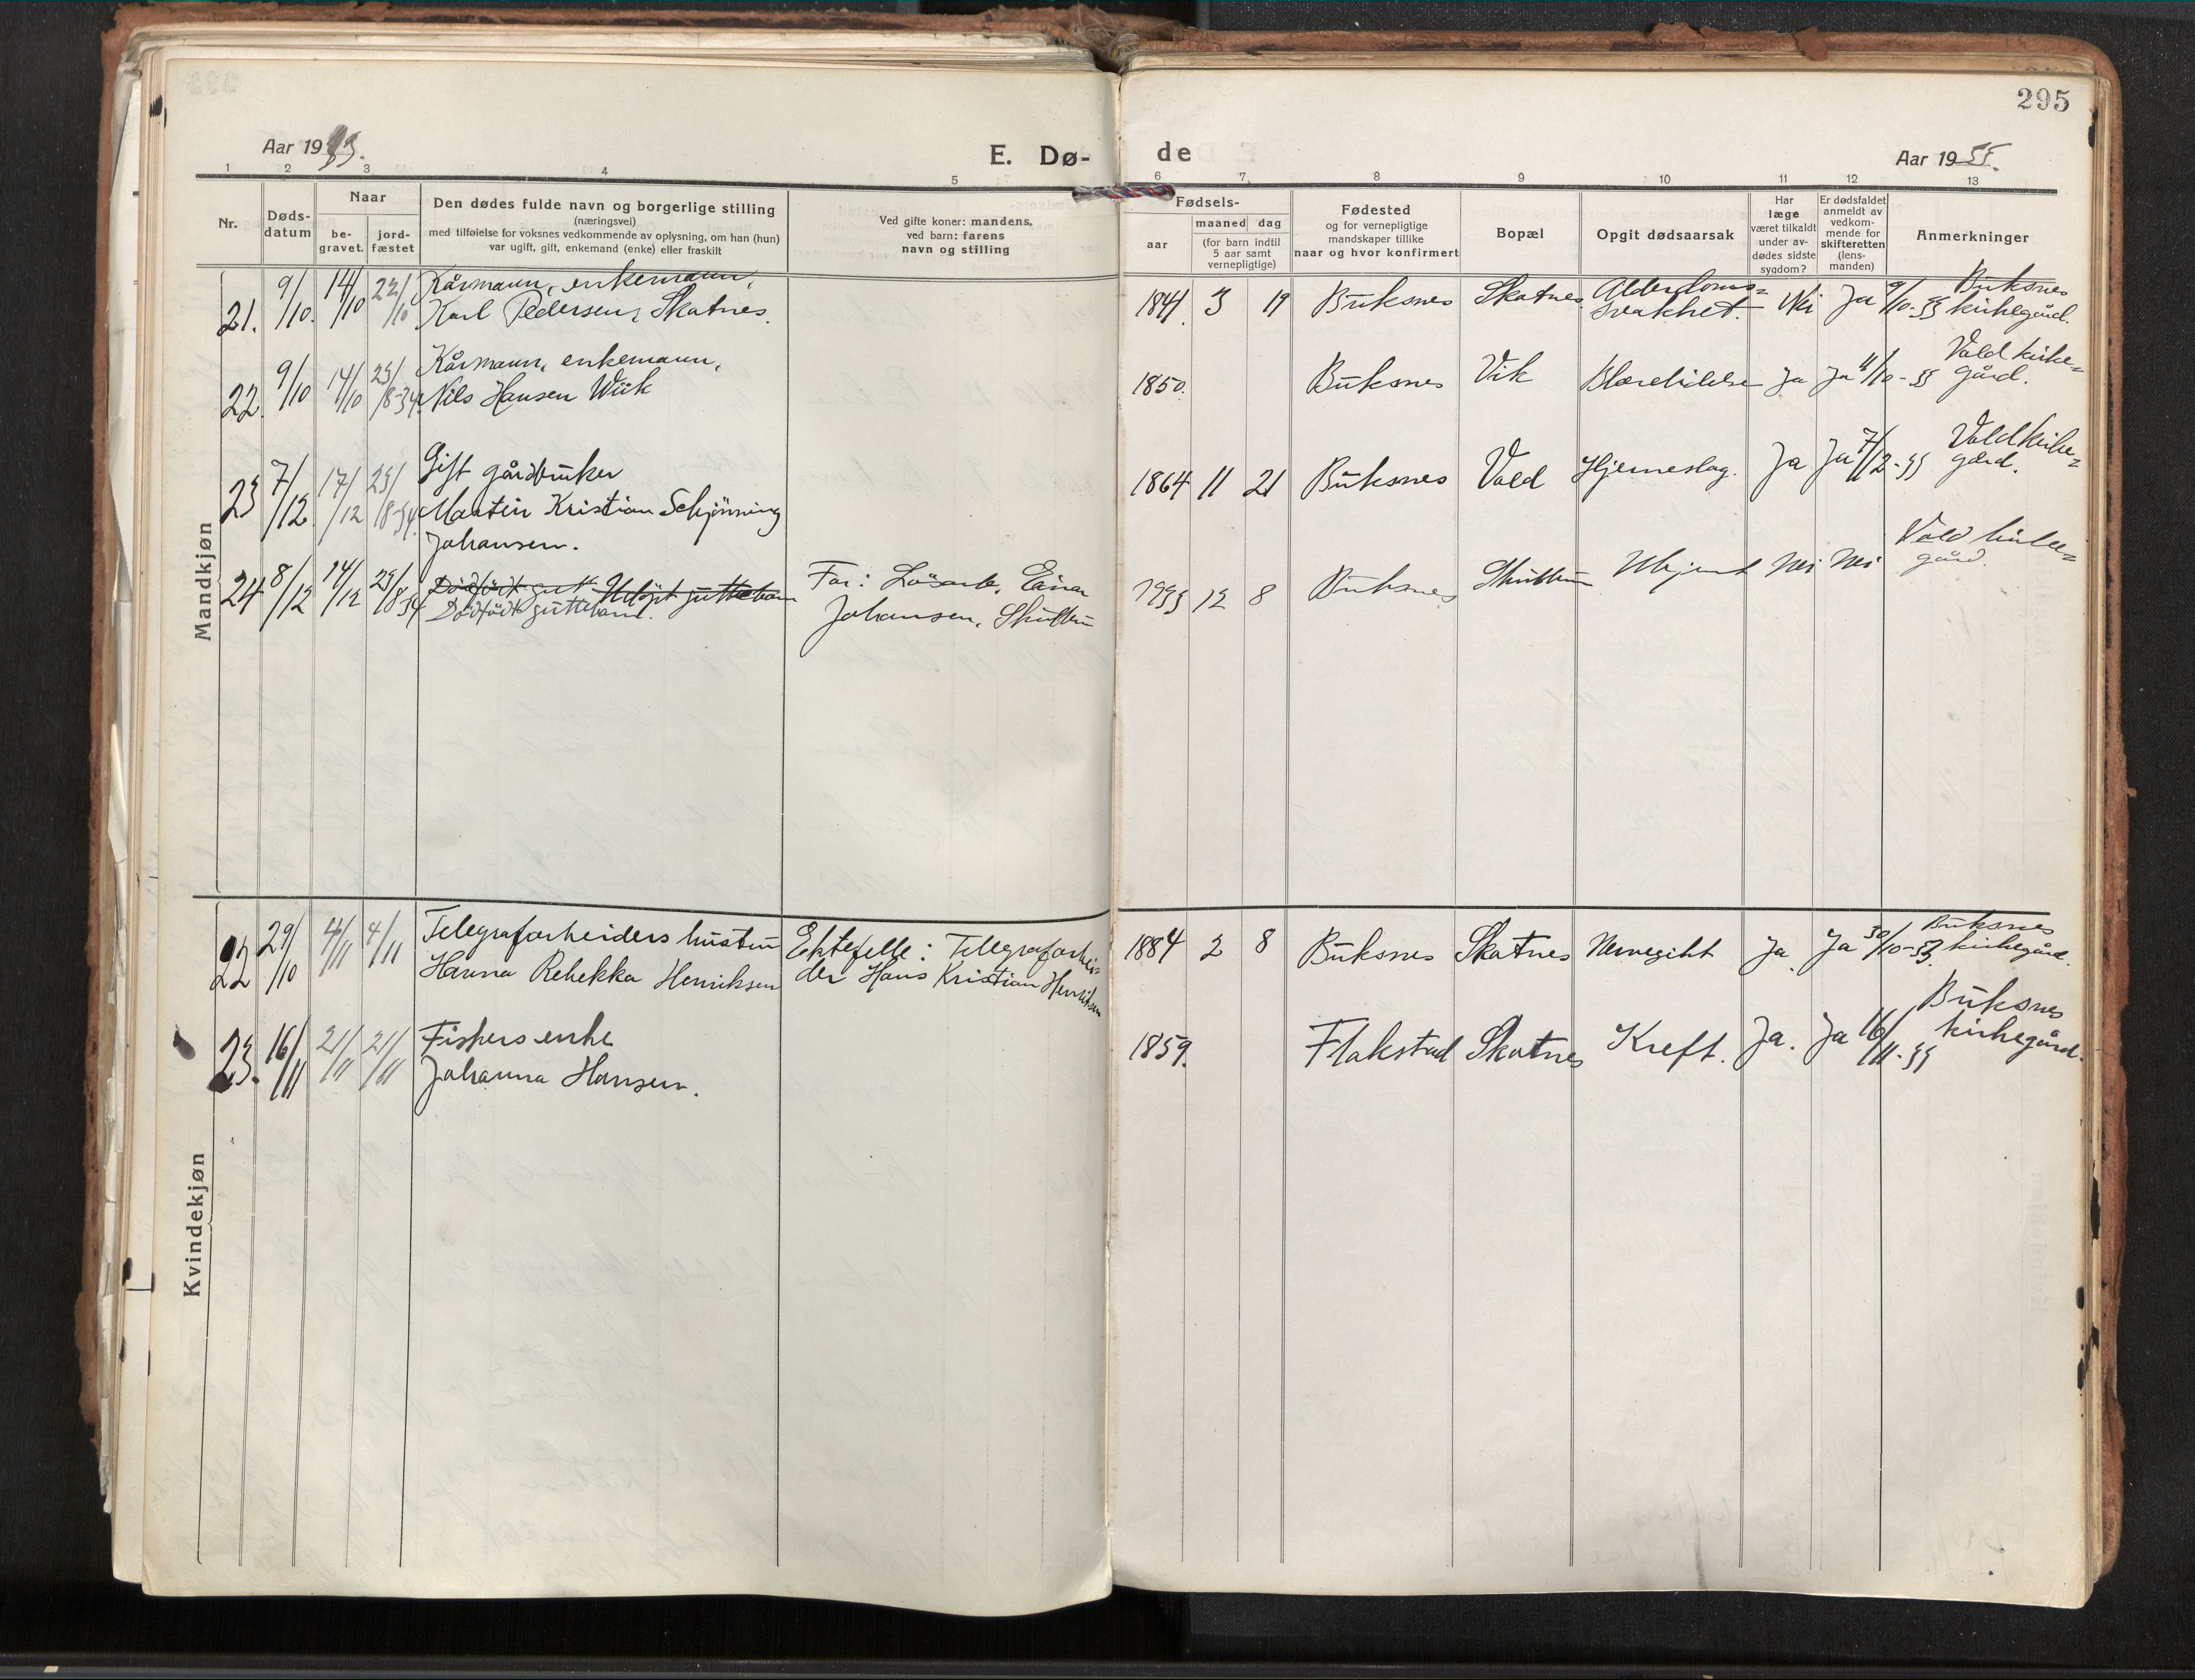 295
Aar 1933.
E. Dø-
de
Aar 1933.
1 2 3 4 5 6 7 8 9 10 11 12 13
Nr.
Døds-
datum
Naar
be-
gravet.
jord-
fæstet
Den dødes fulde navn og borgerlige stilling
(næringsvei)
med tilføielse for voksnes vedkommende av oplysning, om han (hun)
var ugift, gift, enkemand (enke) eller fraskilt
Ved gifte koner: mandens,
ved barn: farens
navn og stilling
Fødsels-
aar
maaned dag
(for barn indtil
5 aar samt
vernepligtige)
Fødested
og for vernepligtige
mandskaper tillike
naar og hvor konfirmert
Bopæl
Opgit dødsaarsak
Har
læge
været tilkaldt
under av-
dødes sidste
sygdom?
Er dødsfaldet
anmeldt av
vedkom-
mende for
skifteretten
(lens-
manden)
Anmerkninger
Mandkjøn
21. 9/10. 14/10 22/10 Kårmann, enkemann,
Karl Pedersen, Skatnes.
1841. 3 19 Buksnes Skatnes. Alderdoms=
svakhet. Nei Ja 9/10-33 Buksnes
kirkegård.
22. 9/10 14/10 23/8-34 Kårmann, enkemann,
Nils Hansen Wiik
1850. Buksnes Vik Blærelidelse Ja Ja 11/10-33 Vold kirke=
gård.
23 7/12 17/12 23/8-34 Gift gårdbruker
Martin Kristian Schjönning
Johansen.
1864 11 21 Buksnes Vold Hjerneslag. Ja Ja 7/12-33 Vold kirke=
gård.
24 8/12 14/12 23/8 34 Dødfødt gutt Udöpt guttebarn
Dödfödt guttebarn.
Far: Lösarb. Einar
Johansen,
1933 12 8 Buksnes Ukjent Nei Nei Vold kirke=
gård.
Kvindekjøn
22 29/10 4/11 4/11 Telegrafarbeiders hustru
Hanna Rebekka Henriksen
Ektefelle: Telegrafarbei=
der Hans Kristian Henriksen
1884 2 8 Buksnes Skatnes Nervegikt Ja Ja 30/10-33. Buksnes
kirkegård.
23. 16/11 21/11 21/11 Fiskers enke
Johanna Hansen.
1859. Flakstad Skatnes Kreft. Ja. Ja 16/11-33 Buksnes
kirkegård.